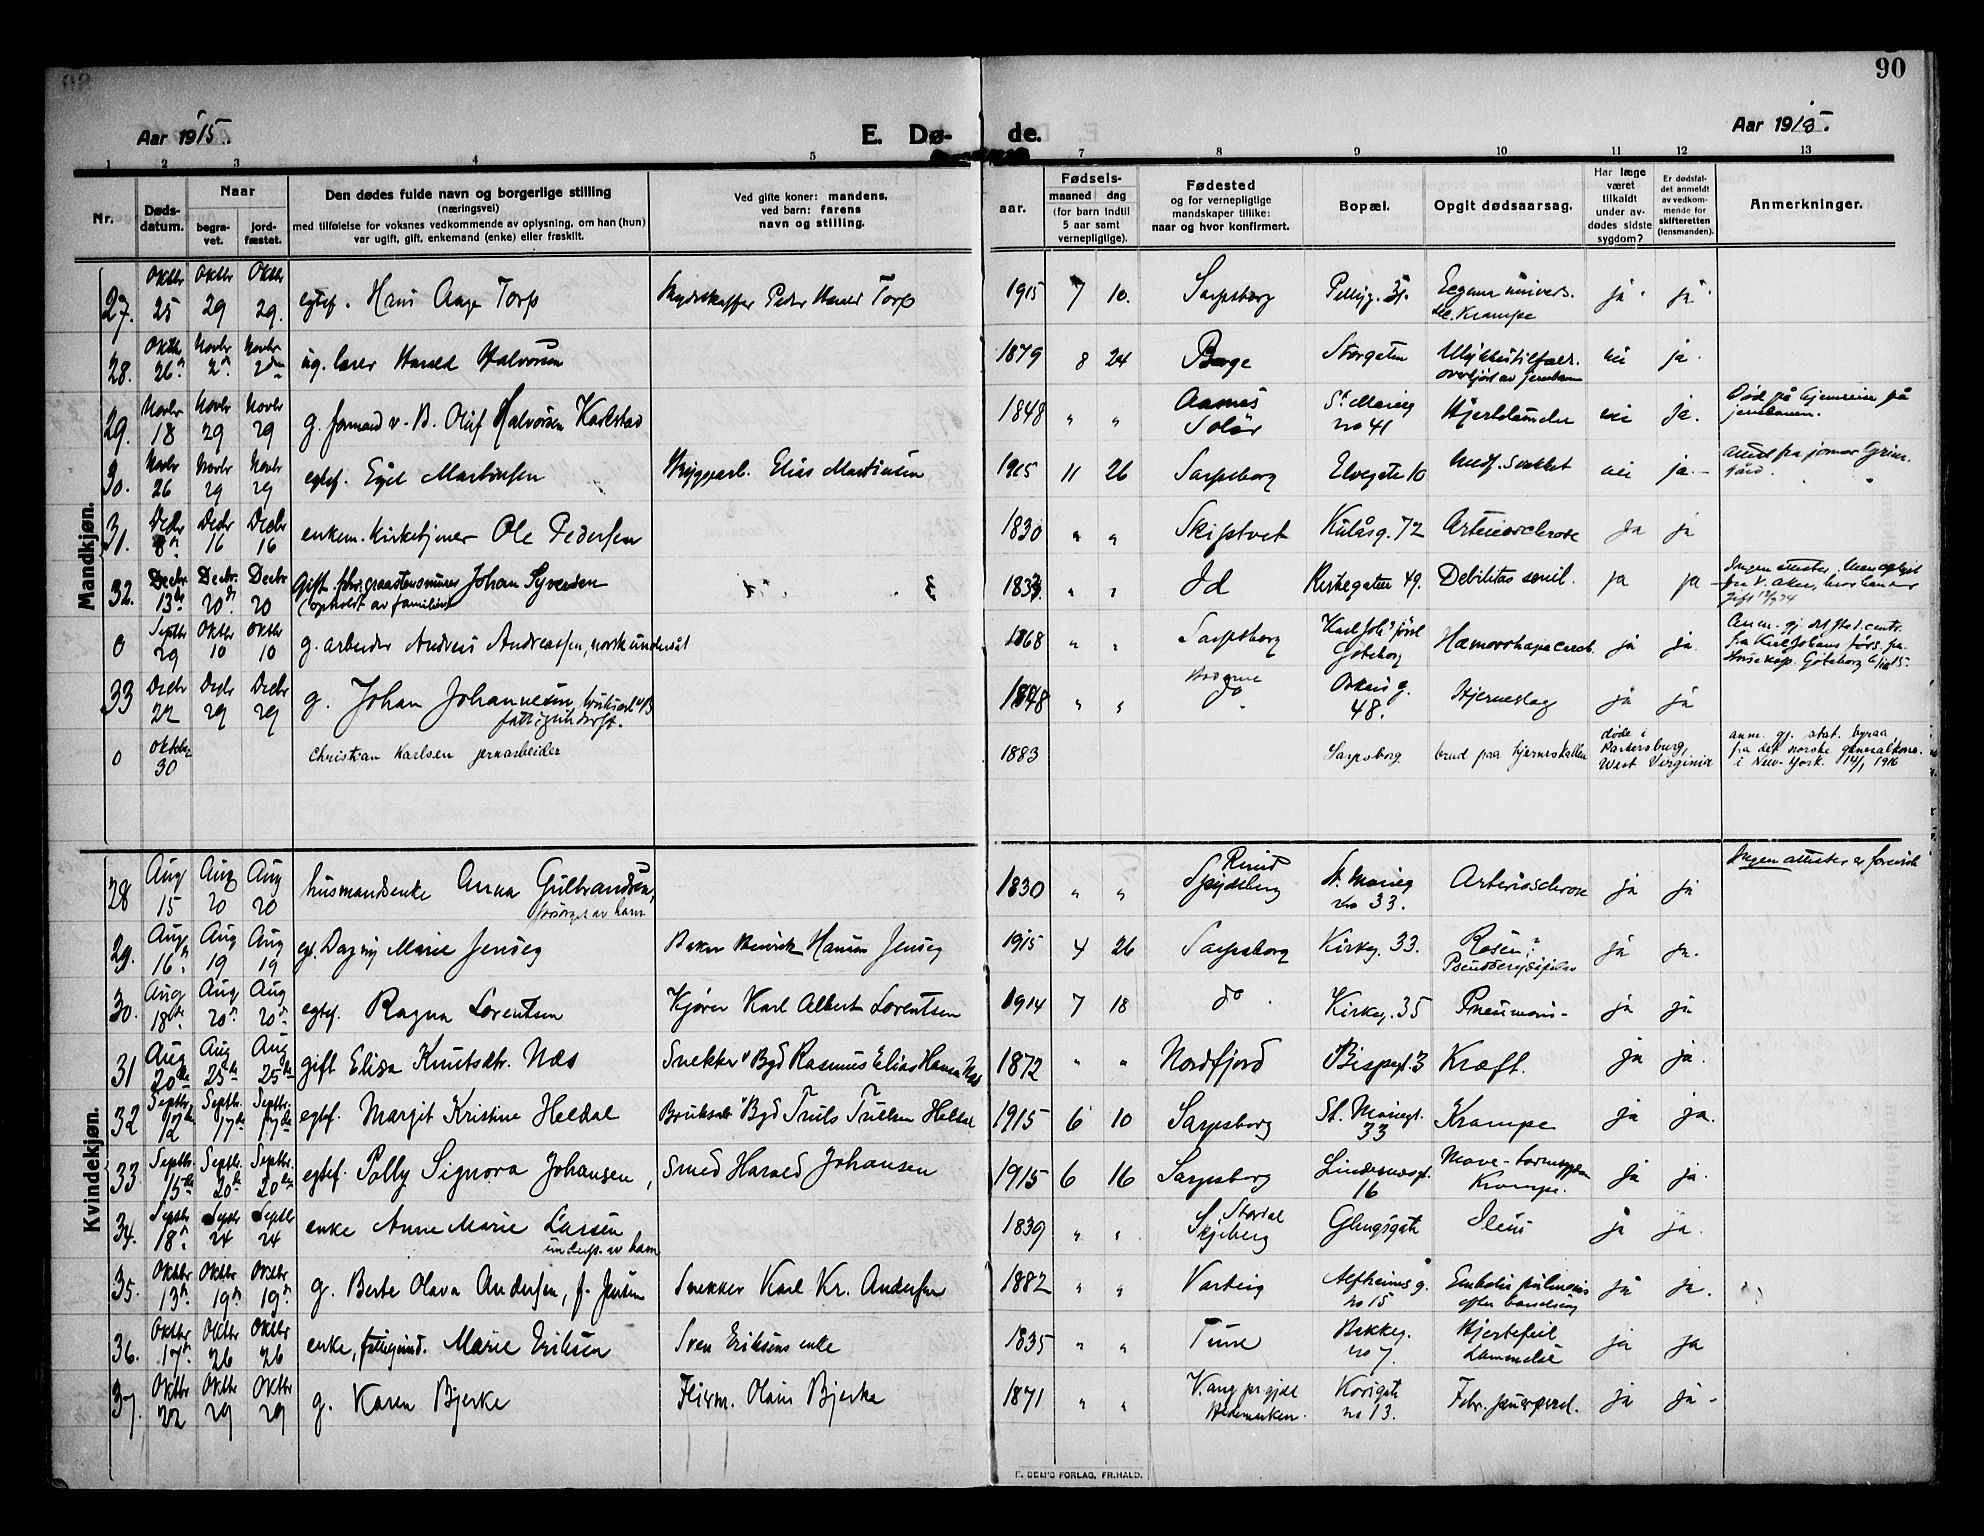 90
Aar 1915.
E. Dø-
de.
Aar 1915.
1 2 3 4 5 7 8 9 10 11 12 13
Nr.
Døds-
datum.
Naar
begra-
vet.
jord-
fæstet.
Den dødes fulde navn og borgerlige stilling
(næringsvei)
med tilføielse for voksnes vedkommende av oplysning, om han (hun)
var ugift, gift, enkemand (enke) eller fraskilt.
Ved gifte koner: mandens,
ved barn: farens
navn og stilling.
aar.
Fødsels-
maaned dag
(for barn indtil
5 aar samt
vernepligtige).
Fødested
og for vernepligtige
mandskaper tillike:
naar og hvor konfirmert.
Bopæl.
Opgit dødsaarsag.
Har læge
været
tilkaldt
under av-
dødes sidste
sygdom?
Er dødsfal-
det anmeldt
av vedkom-
mende for
skifteretten
(lensmanden).
Anmerkninger.
Mandkjøn.
27. Oktbr 25 Oktbr 29 Oktbr 29. egtef. Hans Aage Torp Peder Harald Torp 1915 7 10. Sarpsborg Pellyg. Krampe ja ja
28. Oktbr 26 Novbr 2 Novbr 2 ug. læser Harald Halvorsen 1879 8 24 Borge Storgaten Ulykkestilfæld. overkjørt av jernbanen nei ja
29. Novbr 18 Novbr 29 Novbr 29 g. formand v. B. Olaf Halvorsen Karlstad 1848 " " Aasnes Solør St. Marieg no 41 Hjertelammelse nei ja. Død på hjemreise på jernbanen.
30. Novbr 26 Novbr 29 Novbr 29 egtef. Egil Martinsen Bryggearb. Elias Martinsen 1915 11 26 Sarpsborg Elvegata 10 Medf. svakhet nei ja Anmf. fra jormor
31. Decbr 8 Decbr 16 Decbr 16 enkem. Kirketjener Ole Pedersen 1830 " " Skiptvet Kulåsg. 72 Arteriosclerose Ja ja
32. Decbr. 13de Decbr. 20de Decbr 20 Gift. fhv. graastensmurer Johan Syversen opholdt av familien 1833. " " Id Kirkegaten 49. Debilitas senil. ja ja Ingen attester,
0 Septbr 29 Oktbr 10 Oktbr 10 g. arbeider Andreas Andreassen, norsk undersåt 1868 " " Sarpsborg Karl Joh's førs. Göteborg Hæmorrhagia cereb. ja ja. Anm. gj. det stat. centr. fra Karl Johans förs. Göteborg
33 Decbr 22 Decbr 29 Decbr 29 g. Johan Johannesen, fattigunderst. 1848 " " do Oskars g. 48. Hjerneslag ja ja
0 oktober 30 Christian Karlsen jernarbeider 1883 Sarpsborg brud paa hjerneskallen døde i Parkersburg, West Virginia anm. gj. stat. byraa fra det norske generalkons. i New-York. 14/1 1916
Kvindekjøn.
28 Aug 15 Aug 20 Aug 20 husmandsenke Anna Gulbrandsen, forsørget av barn 1830 " " Spydeberg St. Marieg no 33. Arteriosclerose ja ja Ingen attester er forevist
29. Aug 16 Aug 19 Aug 19 eg. Dagny Marie Jenseg Baker Henrik Hansen Jenseg 1915 4 26 Sarpsborg Kirkeg. 33. Rosen? ja ja.
30. Aug 18de Aug 20 Aug 20 egtef. Ragna Lorentsen Kjører Karl Albert Lorentsen 1914 7 18 do Kirkeg. 35 Pneumoni - ja ja
31 Aug 20de Aug 25de Aug 25de gift Elisa Knutsdtr. Næs Snekker v Byd Rasmus Elias Hansen Næs 1872 " " Nordfjord Bispegt. 3 Kræft. ja ja.
32 Septbr. 12te Septbr. 17de Septbr. 17de egtef. Margit Kristine Heldal Bruksarb v Byd Truls Trulsen Heldal 1915 6 10 Sarpsborg St. Mariegt. 33 Krampe ja ja.
33. Septbr. 15de Septbr. 20de Septbr. 20de egtef. Polly Signora Johansen, Smed Harald Johansen 1915 6 16 Sarpsborg Lindemosgt. 16 Mave-tarmsygdom Krampe. ja ja.
34. Septbr 18 Septbr 24 Septbr 24 enke Anne Marie Larsen underst. av barn 1839 " " Skjeberg Glengsgata Ileus ja ja.
35. Oktbr 13 Oktbr 19 Oktbr 19 g. Berte Olava Andersen, f. Jensen Snekker Karl Kr. Andersen 1882 " " Varteig Alfheimsg. no 15 Emboli pulmonis efter barselseng ja ja.
36. Oktbr 17 Oktbr 26 Oktbr 26 enke, fattigund. Marie Eriksen Sven Eriksens enke 1835 " " Tune Bakkeg. no 7. Hjertefeil Lammelse ja ja
37. Oktbr 22 Oktbr 29 Oktbr 29 g. Karen Bjerke Feierm. Olaus Bjerke 1871 " " Vang prgjeld Hedemarken. Korsgata no 13. Febr. puerperal. ja ja -
E. SEM'S FORLAG, FR.HALD.